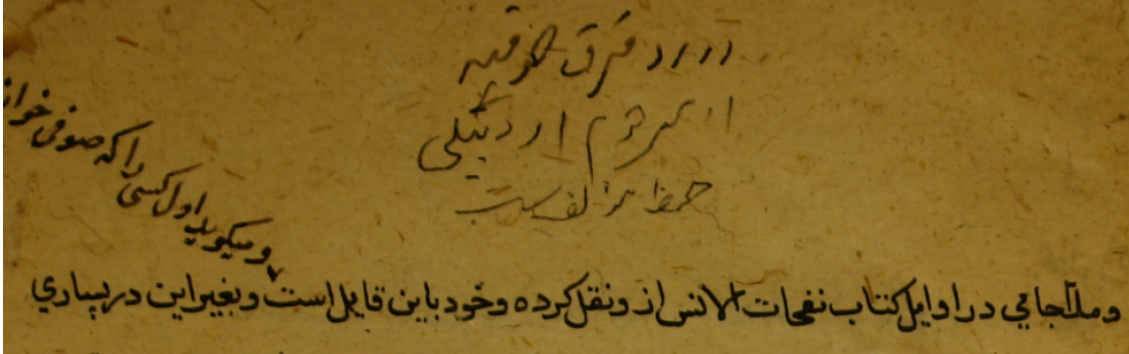 در رد فرق صوفیه
از مرحوم اردبیلی
و میکوید اول کسی را که صوفی خواند
وملا جامي در اوایل کتاب نفحات الانس از و نقل کرده وخود باین قایل است وبغیر این دربسیاري